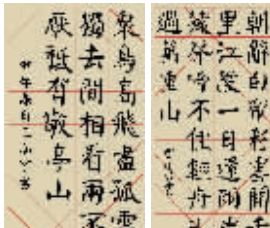 朝辭白帝彩雲間千
里江陵一日還兩岸
猿聲啼不住輕舟已
過萬重山
衆鳥高飛盡孤雲
獨去間相看兩不
厭祗有敬亭山